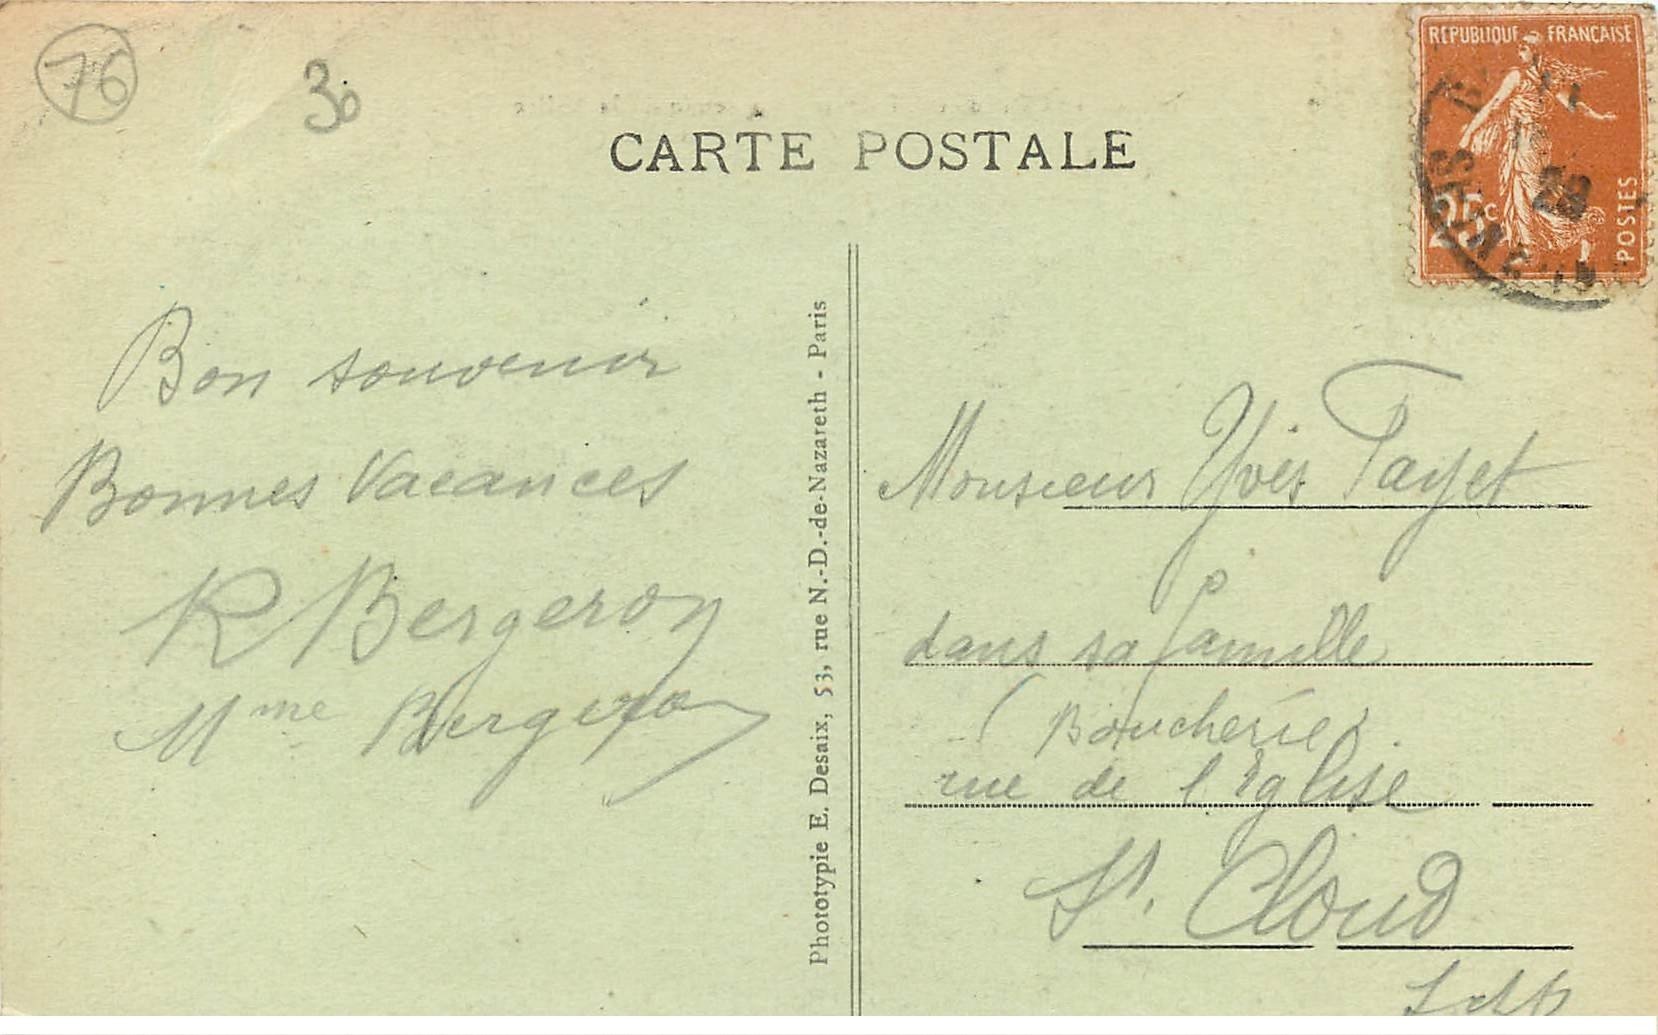 76
30
CARTE POSTALE
REPUBLIQUE FRANÇAISE
25c
POSTES
28
Bon souvenir
Bonnes Vacances
R Bergeron
Mme Bergeron
Phototypie E. Desaix, 53, rue N.-D.-de-Nazareth - Paris
Monsieur Yves Payet
dans sa famille
(Boucherie)
rue de l'Eglise
St. Cloud
S et O